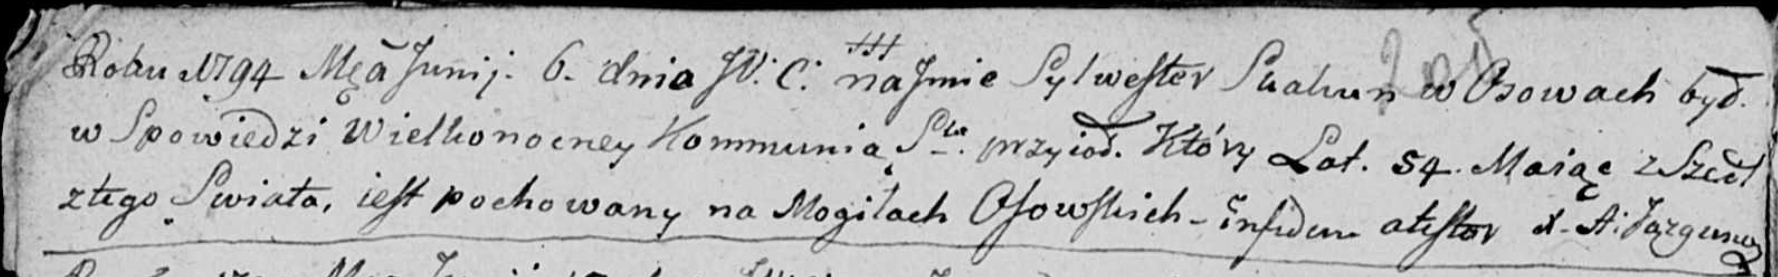 Roku 1794 Mca Junij. 6. dnia JW: C: na Jmie Sylwester Skakun w Osowach był.
w Spowiedzi Wielkonocney Kommunią Sta. przyioł. Który Lat. 54. Maiąc z Szedł
z tego Swiata, iest pochowany na Mogiłach Osowskich - in fidem atestor X. A: Jazgunow